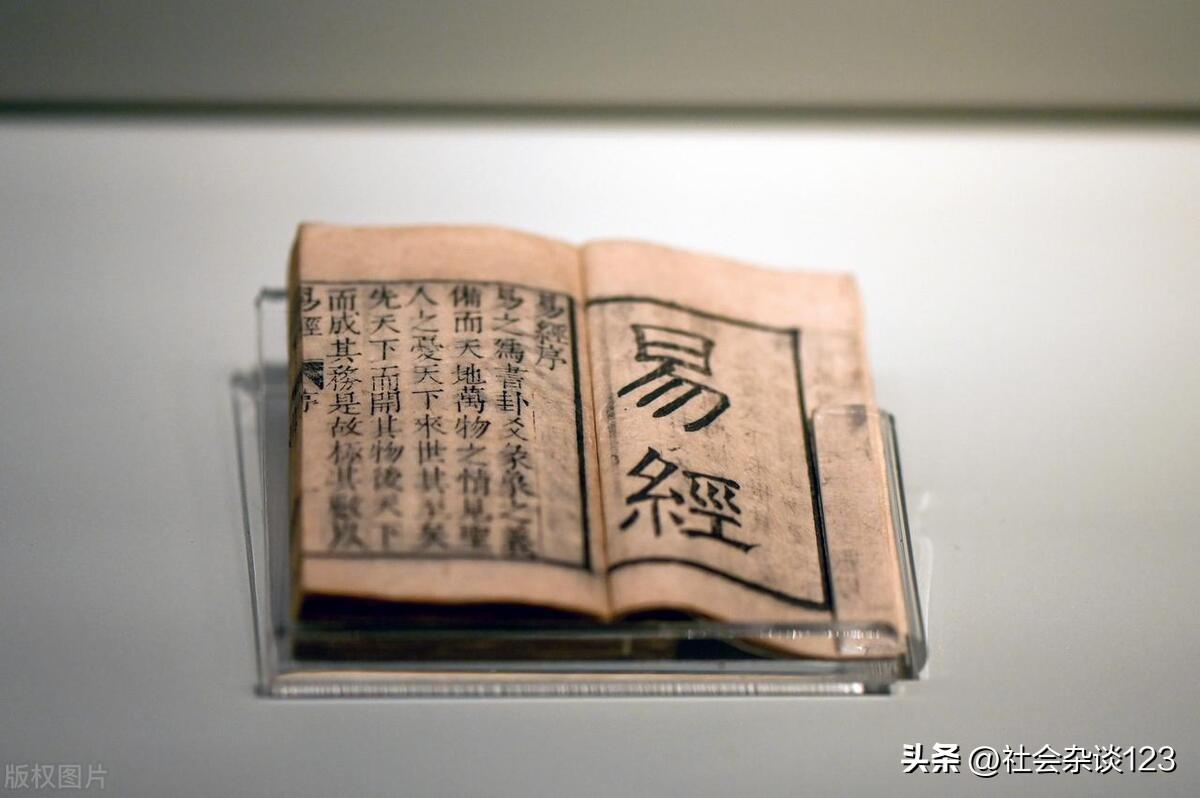 易
經
易經序
易之爲書卦爻彖象之義
備而天地萬物之情見聖
人之憂天下來世其至矣
先天下而開其物後天下
而成其務是故極其數以
易經 序
版权图片
头条 @社会杂谈123